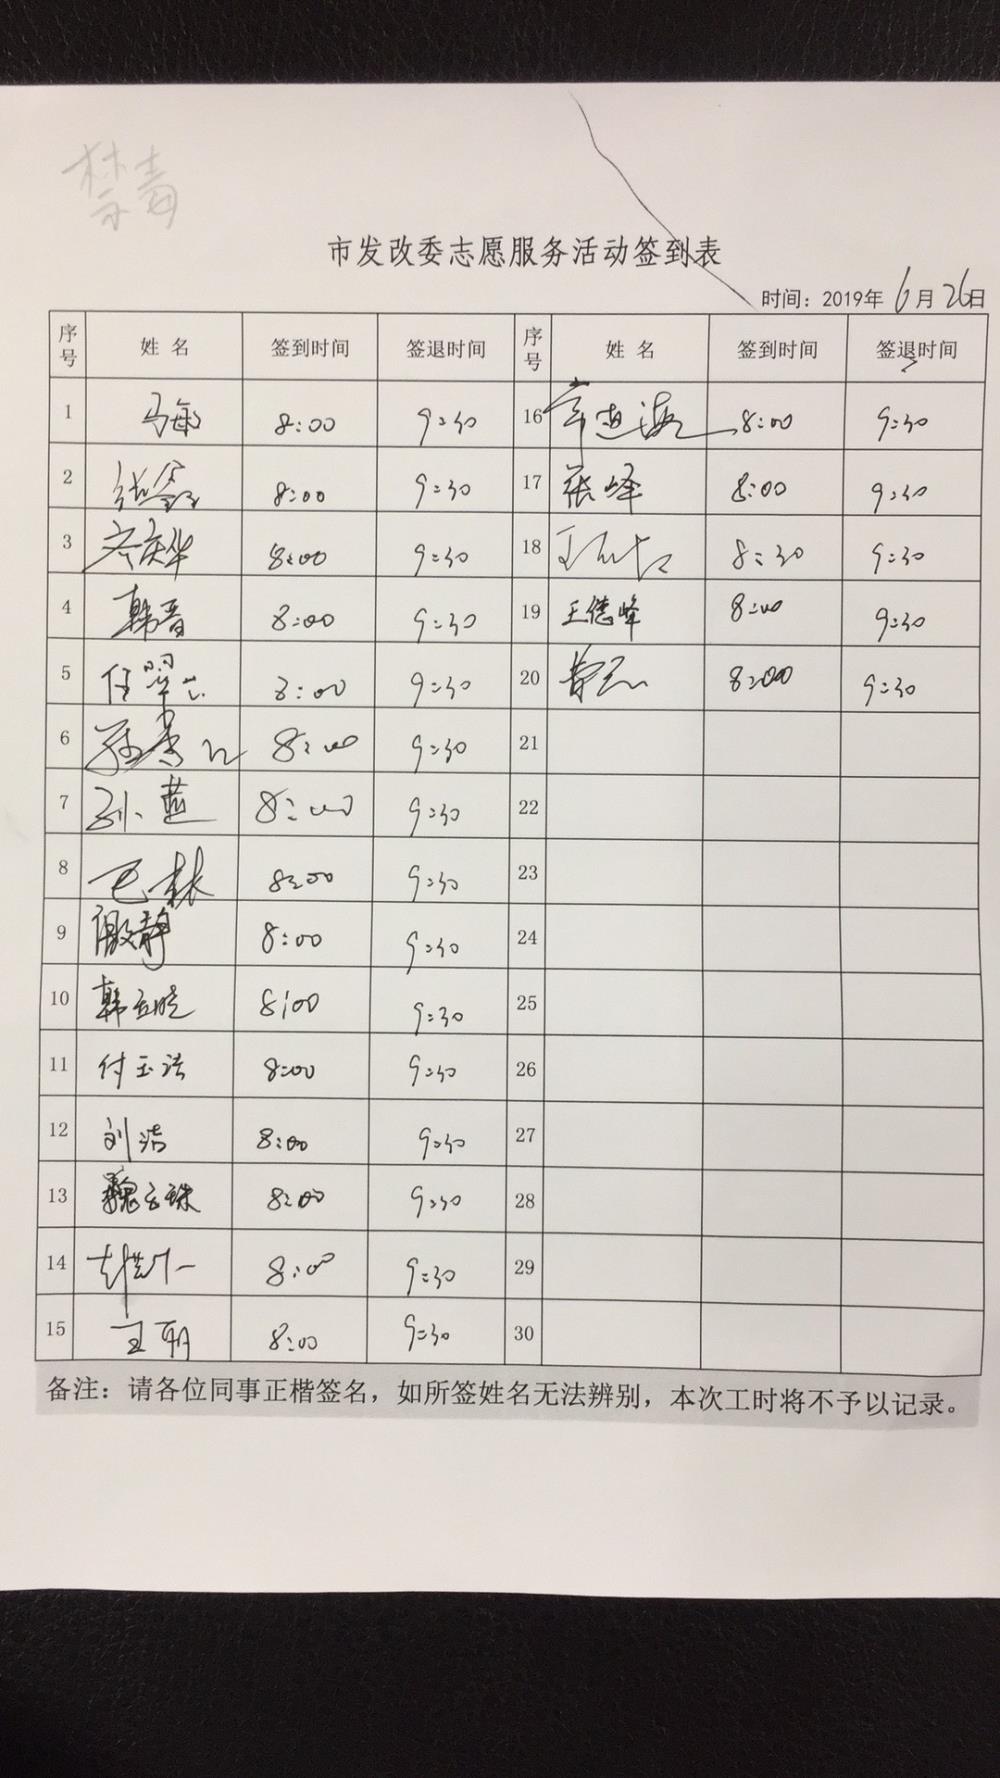 禁毒
市发改委志愿服务活动签到表
时间：2019年 6月 26日
序号 姓名 签到时间 签退时间 序号 姓名 签到时间 签退时间
1 马敏 8:00 9:30 16 8:00 9:30
2 张鑫 8:00 9:30 17 张峰 8:00 9:30
3 齐庆华 8:00 9:30 18 8:30 9:30
4 韩晋 8:00 9:30 19 王德峰 8:00 9:30
5 任翠芯 8:00 9:30 20 8:00 9:30
6 8:00 9:30 21
7 孙蓝 8:00 9:30 22
8 8:00 9:30 23
9 静 8:00 9:30 24
10 韩 晓 8:00 9:30 25
11 付玉洁 8:00 9:30 26
12 刘洁 8:00 9:30 27
13 魏云珠 8:00 9:30 28
14 8:00 9:30 29
15 王朝 8:00 9:30 30
备注：请各位同事正楷签名，如所签姓名无法辨别，本次工时将不予以记录。